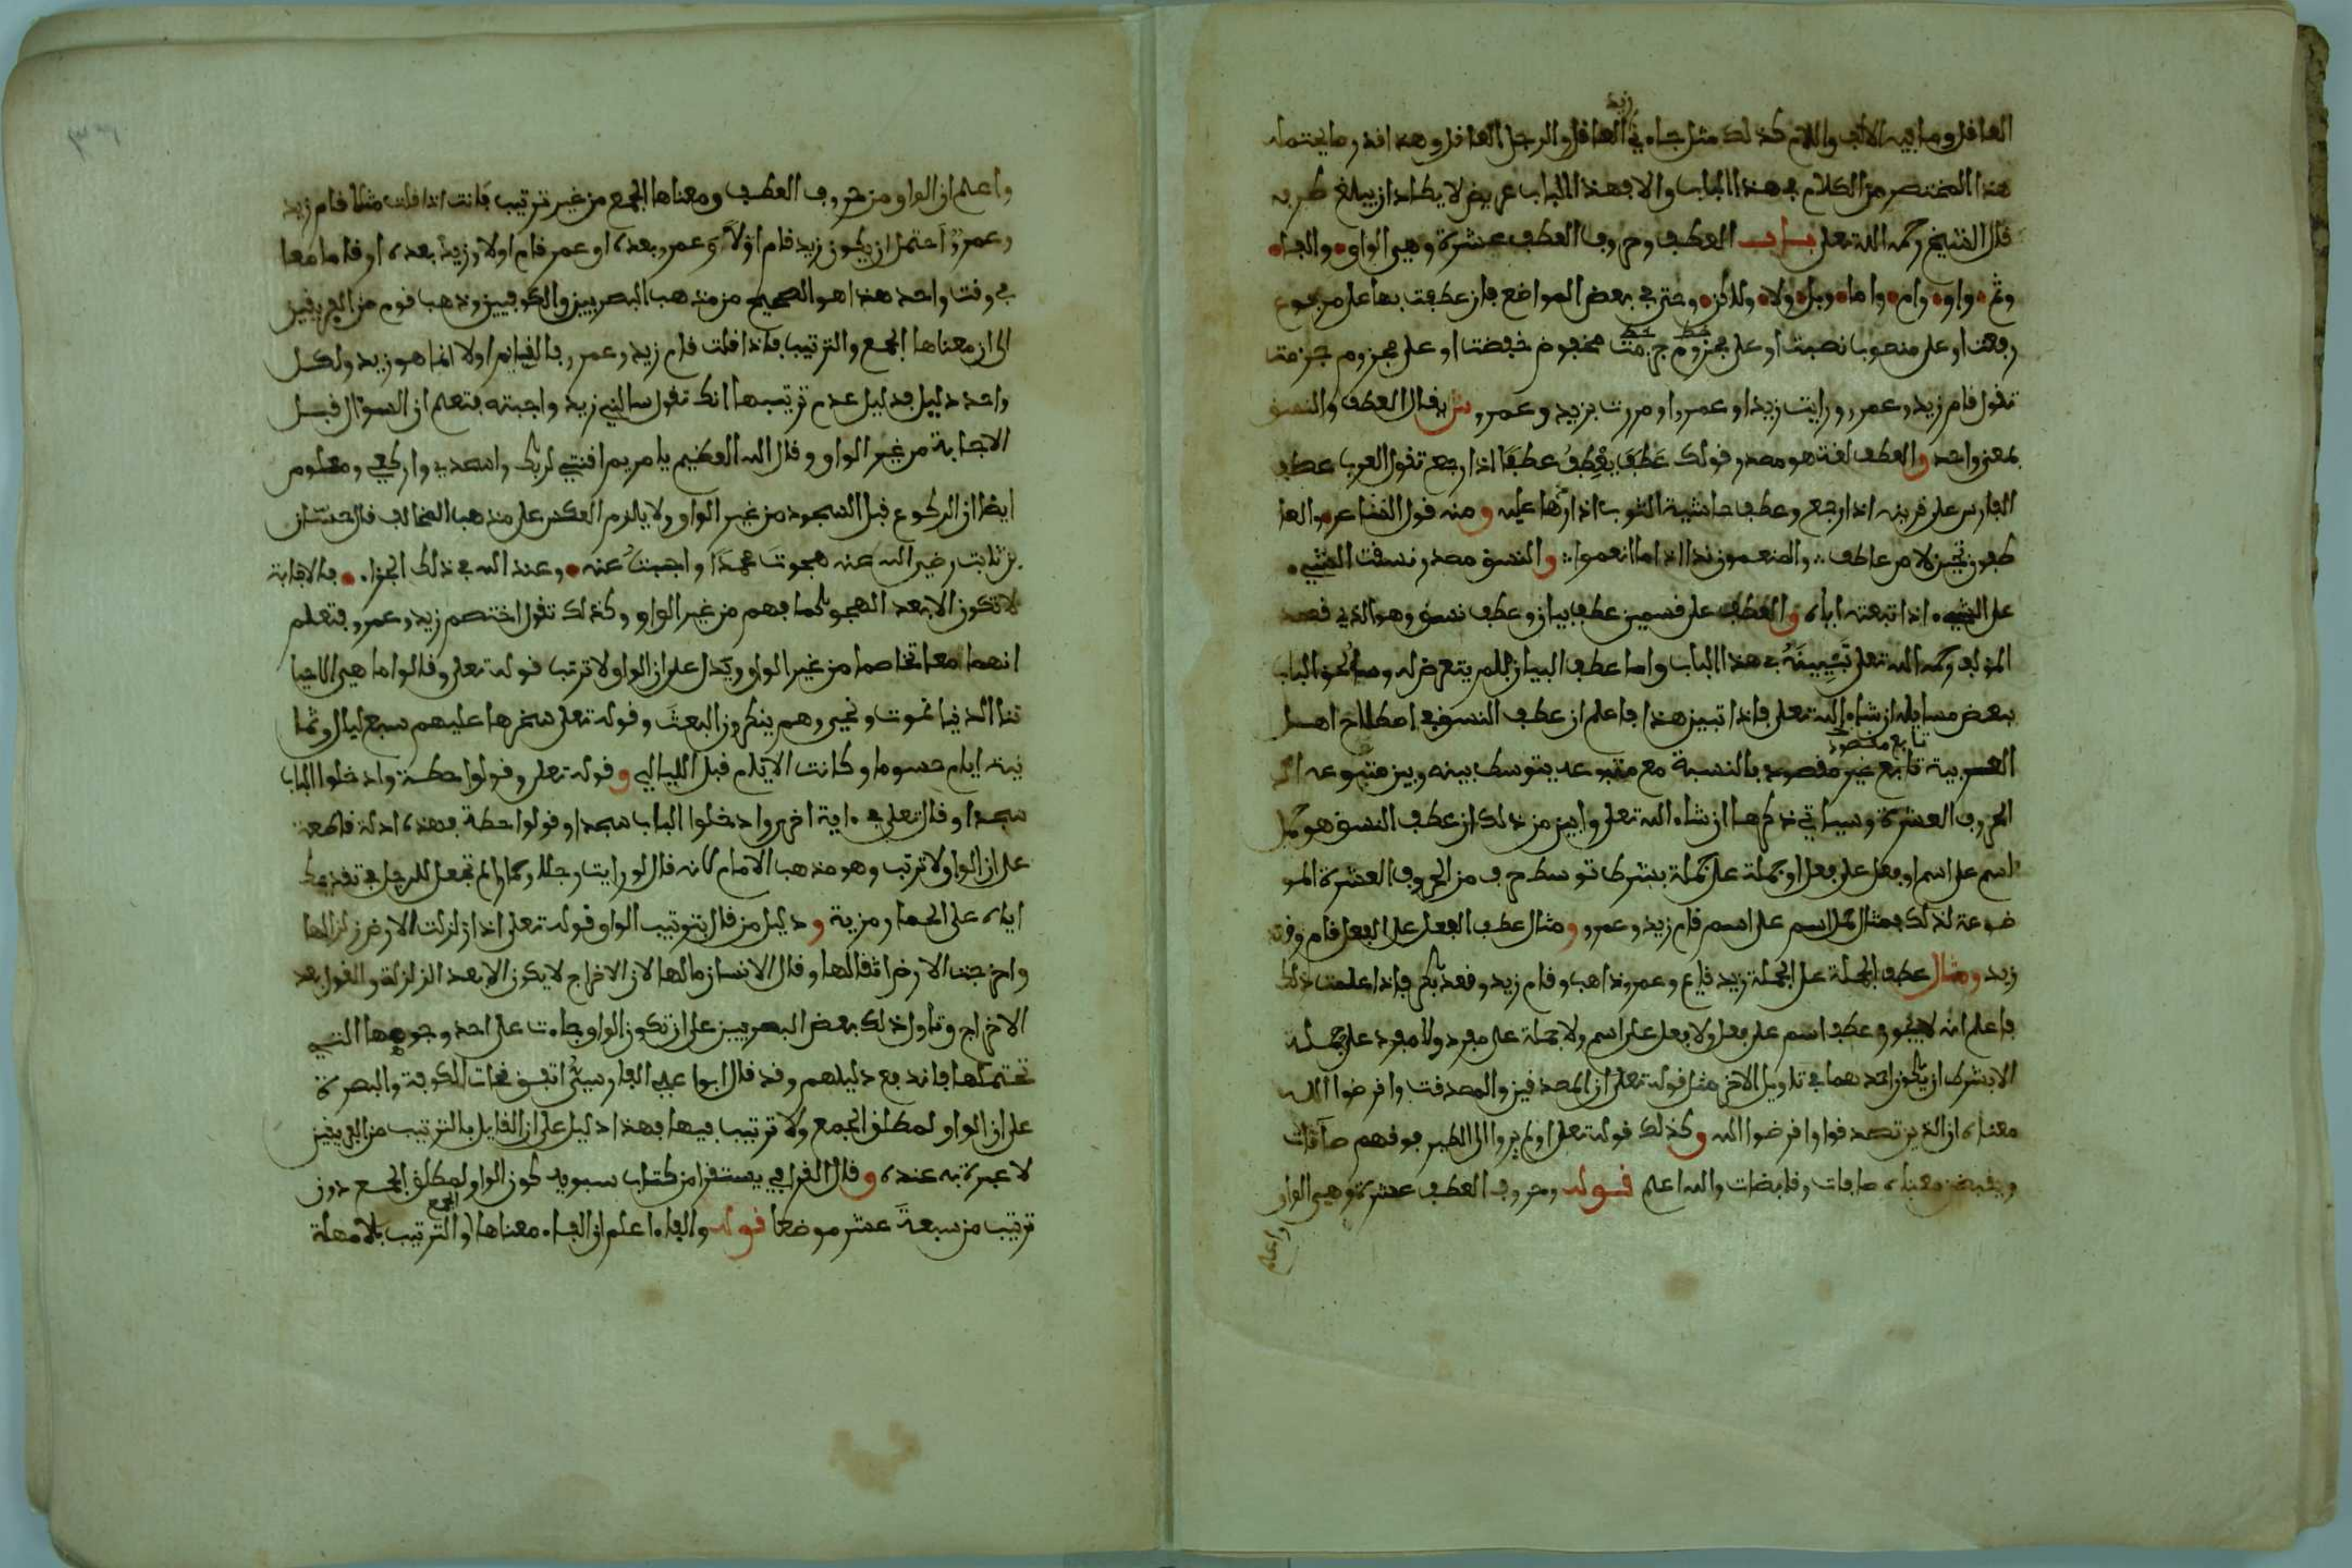 العاقل وما فيه الالف واللام كذلك مثل جاءني زيد العاقل والرجل العاقل وهذا قدر ما يحتمله
هذا المختصر من الكلام في هذا الباب والا فهذا الباب عريض لا يكاد ان يبلغ طرفه
قال الشيخ رحمه الله تعلى باب العطف وحروف العطف عشرة وهي الواو والفاء
وثم واو وام واما وبل ولا ولكن وحتى في بعض المواضع فان عطفت بها على مرفوع
رفعت او على منصوب نصبت او على مخفوض خفضت او على مجزوم جزمت
تقول قام زيد وعمرو ورايت زيدا وعمرا ومررت بزيد وعمرو ش يقال العطف والنسق
بمعنى واحد والعطف لغة هو مصدر قولك عَطَفَ يَعْطِفُ عطفًا اذا رجع تقول العرب عطف
الفارس على قرينه اذا رجع وعطف حاشية الثوب اذا ردها عليه ومنه قول الشاعر والعا
طفون تحين لا من عاطف والمنعمون ندا اذا ما انعموا والنسق مصدر نسقت الشيء
على الشيء اذا اتبعته اياه والعطف على قسمين عطف بيان وعطف نسق وهو الذي قصد
المؤلف رحمه الله تعلى تَبْيِينَهُ في هذا الباب واما عطف البيان فلم يتعرض له وسنلحق بالباب
بعض مسايله ان شاء الله تعلى فاذا تبين هذا فاعلم ان عطف النسق في اصطلاح اهل
العربية تابع مقصود بالنسبة مع متبوعه يتوسط بينه وبين متبوعه احد
الحروف العشرة وسياتي ذكرها ان شاء الله تعلى وابين من ذلك ان عطف النسق هو حمل
اسم على اسم او فعل على فعل او جملة على جملة بشرط توسط حرف من الحروف العشرة المو
ضوعة لذلك فمثال حمل اسم على اسم قام زيد وعمرو ومثال عطف الفعل على الفعل قام وقعد
زيد ومثال عطف الجملة على الجملة زيد قايم وعمرو ذاهب وقام زيد وقعد بكر فاذا علمت ذلك
فاعلم انه لا يجوز عطف اسم على فعل ولا فعل على اسم ولا جملة على مفرد ولا مفرد على جملة
الا بشرط ان يكون احدهما في تاويل الاخر مثل قوله تعلى ان المصدقين والمصدقت واقرضوا الله
معناه ان الذين تصدقوا واقرضوا الله وكذلك قوله تعلى اولم يروا الى الطير فوقهم صآفات
ويقبضن معناه صافات وقابضات والله اعلم قوله وحروف العطف عشرة وهي الواو
واعلم
واعلم ان الواو من حروف العطف ومعناها الجمع من غير ترتيب فانت اذا قلت مثلا قام زيد
وعمرو احتمل ان يكون زيد قام اولا وعمرو بعده او عمر قام اولا وزيد بعده او قاما معا
في وقت واحد هذا هو الصحيح من مذهب البصريين والكوفيين وذهب قوم من الفريقين
الى ان معناها الجمع والترتيب فاذا قلت قام زيد وعمرو فالقيام اولا انما هو زيد ولكل
واحد دليل فدليل عدم ترتيبها انك تقول سالني زيد واجبته فتعلم ان السؤال قبل
الاجابة من غير الواو وقال الله العظيم يا مريم اقنتي لربك واسجدي واركعي ومعلوم
ايضا ان الركوع قبل السجود من غير الواو ولا يلزم العكس على مذهب المخالف قال حسان
بن ثابت رضي الله عنه هجوتَ محمدًا واجبتُ عنه وعند الله في ذلك الجزاء فالاجابة
لا تكون الا بعد الهجو كما فهم من غير الواو وكذلك تقول اختصم زيد وعمرو فتعلم
انهما معا تخاصما من غير الواو ويدل على ان الواو لا ترتب قوله تعلى وقالوا ما هي الا حيا
تنا الدنيا نموت ونحيى وهم ينكرون البعث وقوله تعلى سخرها عليهم سبع ليال وثما
نية ايام حسوما وكانت الايام قبل الليالي وقوله تعلى وقولوا حطة وادخلوا الباب
سجدا وقال تعلى في ءاية اخرى وادخلوا الباب سجدا وقولوا حطة فهذه ادلة قاطعة
على ان الواو لا ترتب وهو مذهب الامام لانه قال لو رايت رجلا وحمارا لم تجعل للرجل في تقديمك
اياه على الحمار مزية ودليل من قال بترتيب الواو قوله تعلى اذا زلزلت الارض زلزالها
واخرجت الارض اثقالها وقال الانسان مالها لان الاخراج لا يكون الا بعد الزلزلة والقول بعد
الاخراج وتاول ذلك بعض البصريين على ان تكون الواو جاءت على احد وجوهها التي
تحتملها فاندفع دليلهم وقد قال ابوا علي الفارسي اتفق نحات الكوفة والبصرة
على ان الواو لمطلق الجمع ولا ترتيب فيها فهذا دليل على ان القايل بالترتيب من الفريقين
لا عبرة به عنده وقال القرافي يستقرا من كتاب سيبويه كون الواو لمطلق الجمع دون
ترتيب من سبعة عشر موضعا قوله والفاء اعلم ان الفاء معناها الجمع والترتيب بلا مهلة